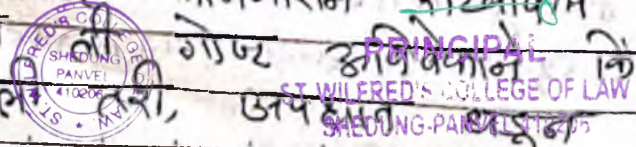 ती गोष्ट अविवेकाने कि
तरी, अपघात घडून
ST. WILFRED'S COLLEGE OF LAW
SHEDUNG
PANVEL
410206
PRINCIPAL
ST. WILFRED'S COLLEGE OF LAW
SHEDUNG-PANVEL 410206